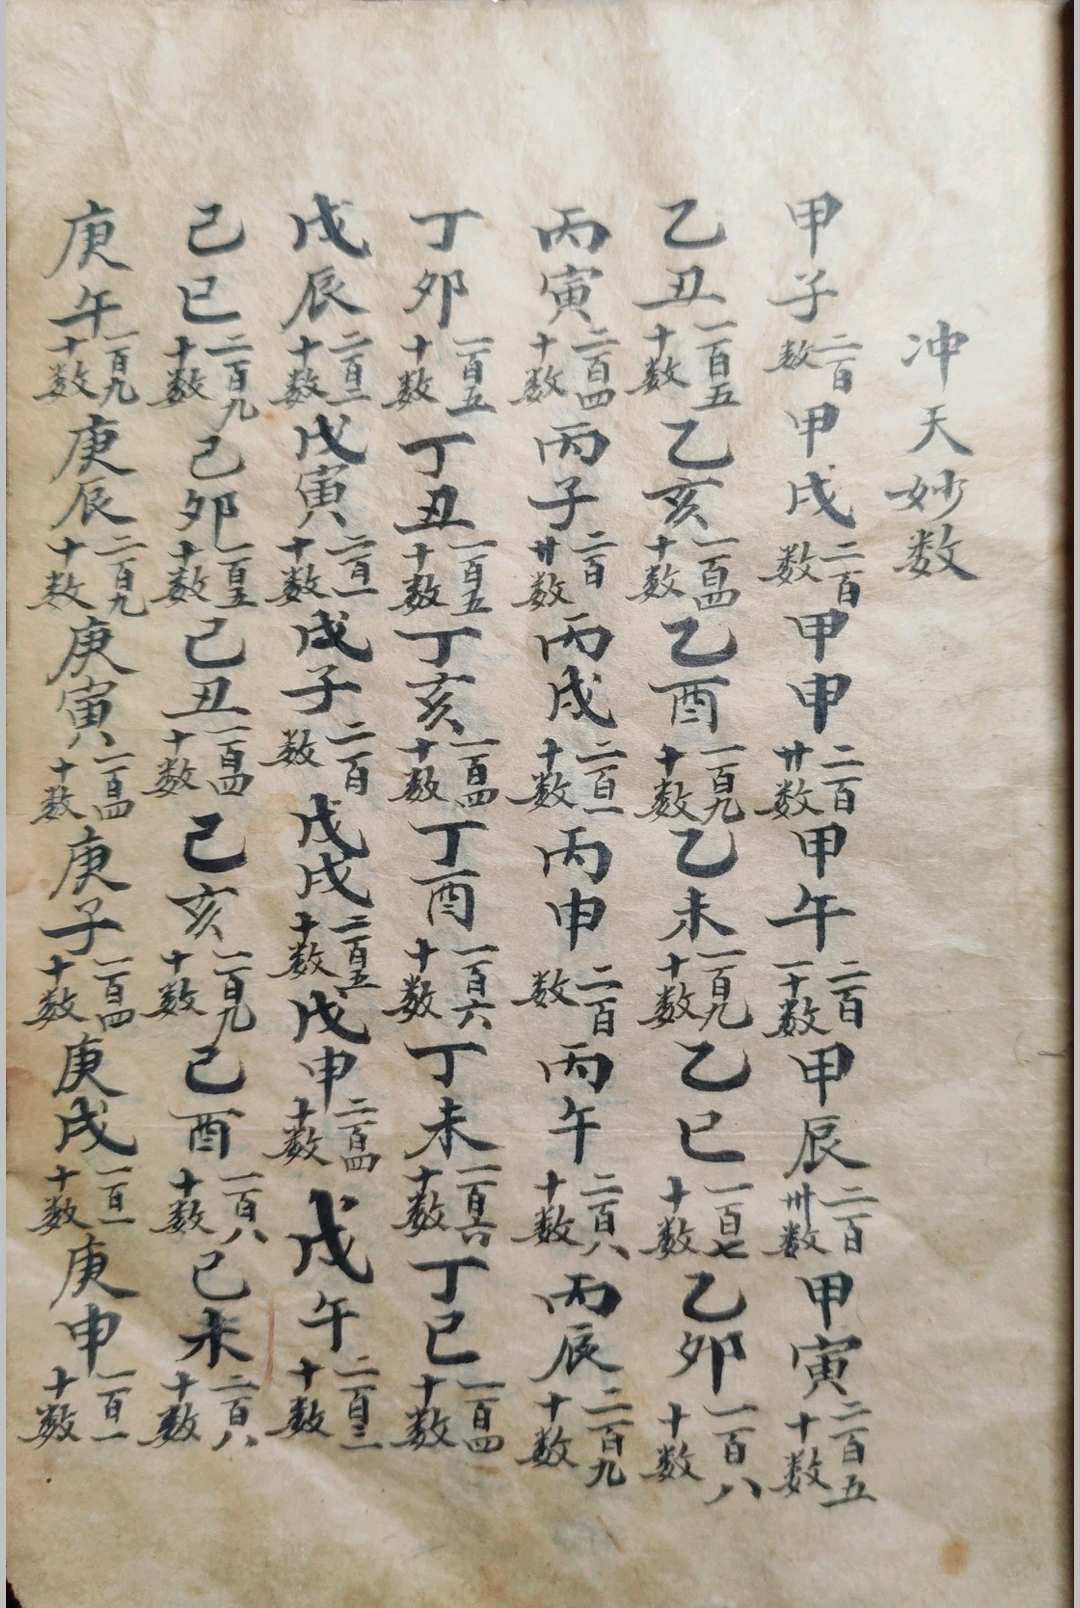 冲天妙数
甲子二百数甲戌二百数甲申二百廿数甲午二百一十数甲辰二百卅数甲寅二百五十数
乙丑一百五十数乙亥一百四十数乙酉一百九十数乙未一百九十数乙巳一百七十数乙卯一百八十数
丙寅二百四十数丙子二百廿数丙戌二百一十数丙申二百数丙午二百八十数丙辰二百九十数
丁卯一百五十数丁丑一百五十数丁亥一百四十数丁酉一百六十数丁未一百六十数丁巳一百四十数
戊辰二百二十数戊寅二百一十数戊子二百数戊戌二百五十数戊申二百四十数戊午二百三十数
己巳二百九十数己卯一百五十数己丑一百四十数己亥一百九十数己酉一百八十数己未二百八十数
庚午一百九十数庚辰二百九十数庚寅一百四十数庚子一百四十数庚戌一百一十数庚申一百一十数